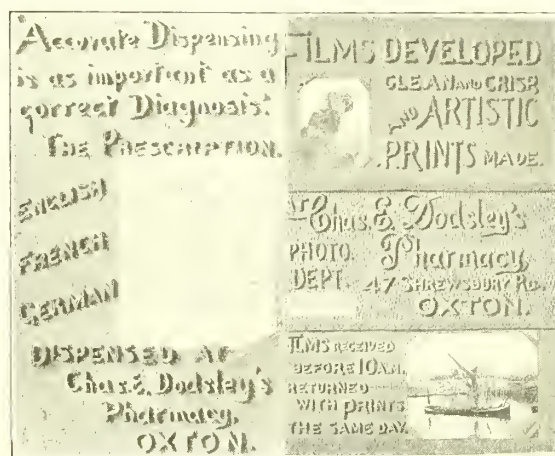 Accurate Dispensing
is as important as a
correct Diagnosis.
THE PRESCRIPTION.
ENGLISH
FRENCH
GERMAN
DISPENSED AT
Chas. E. Dodsley's
Pharmacy,
OXTON.
FILMS DEVELOPED
CLEAN AND CRISP
AND ARTISTIC
PRINTS MADE.
AT Chas. E. Dodsley's
PHOTO. Pharmacy,
DEPT. 47 SHREWSBURY RD.
OXTON.
FILMS RECEIVED
BEFORE 10 A.M.
RETURNED
WITH PRINTS
THE SAME DAY.